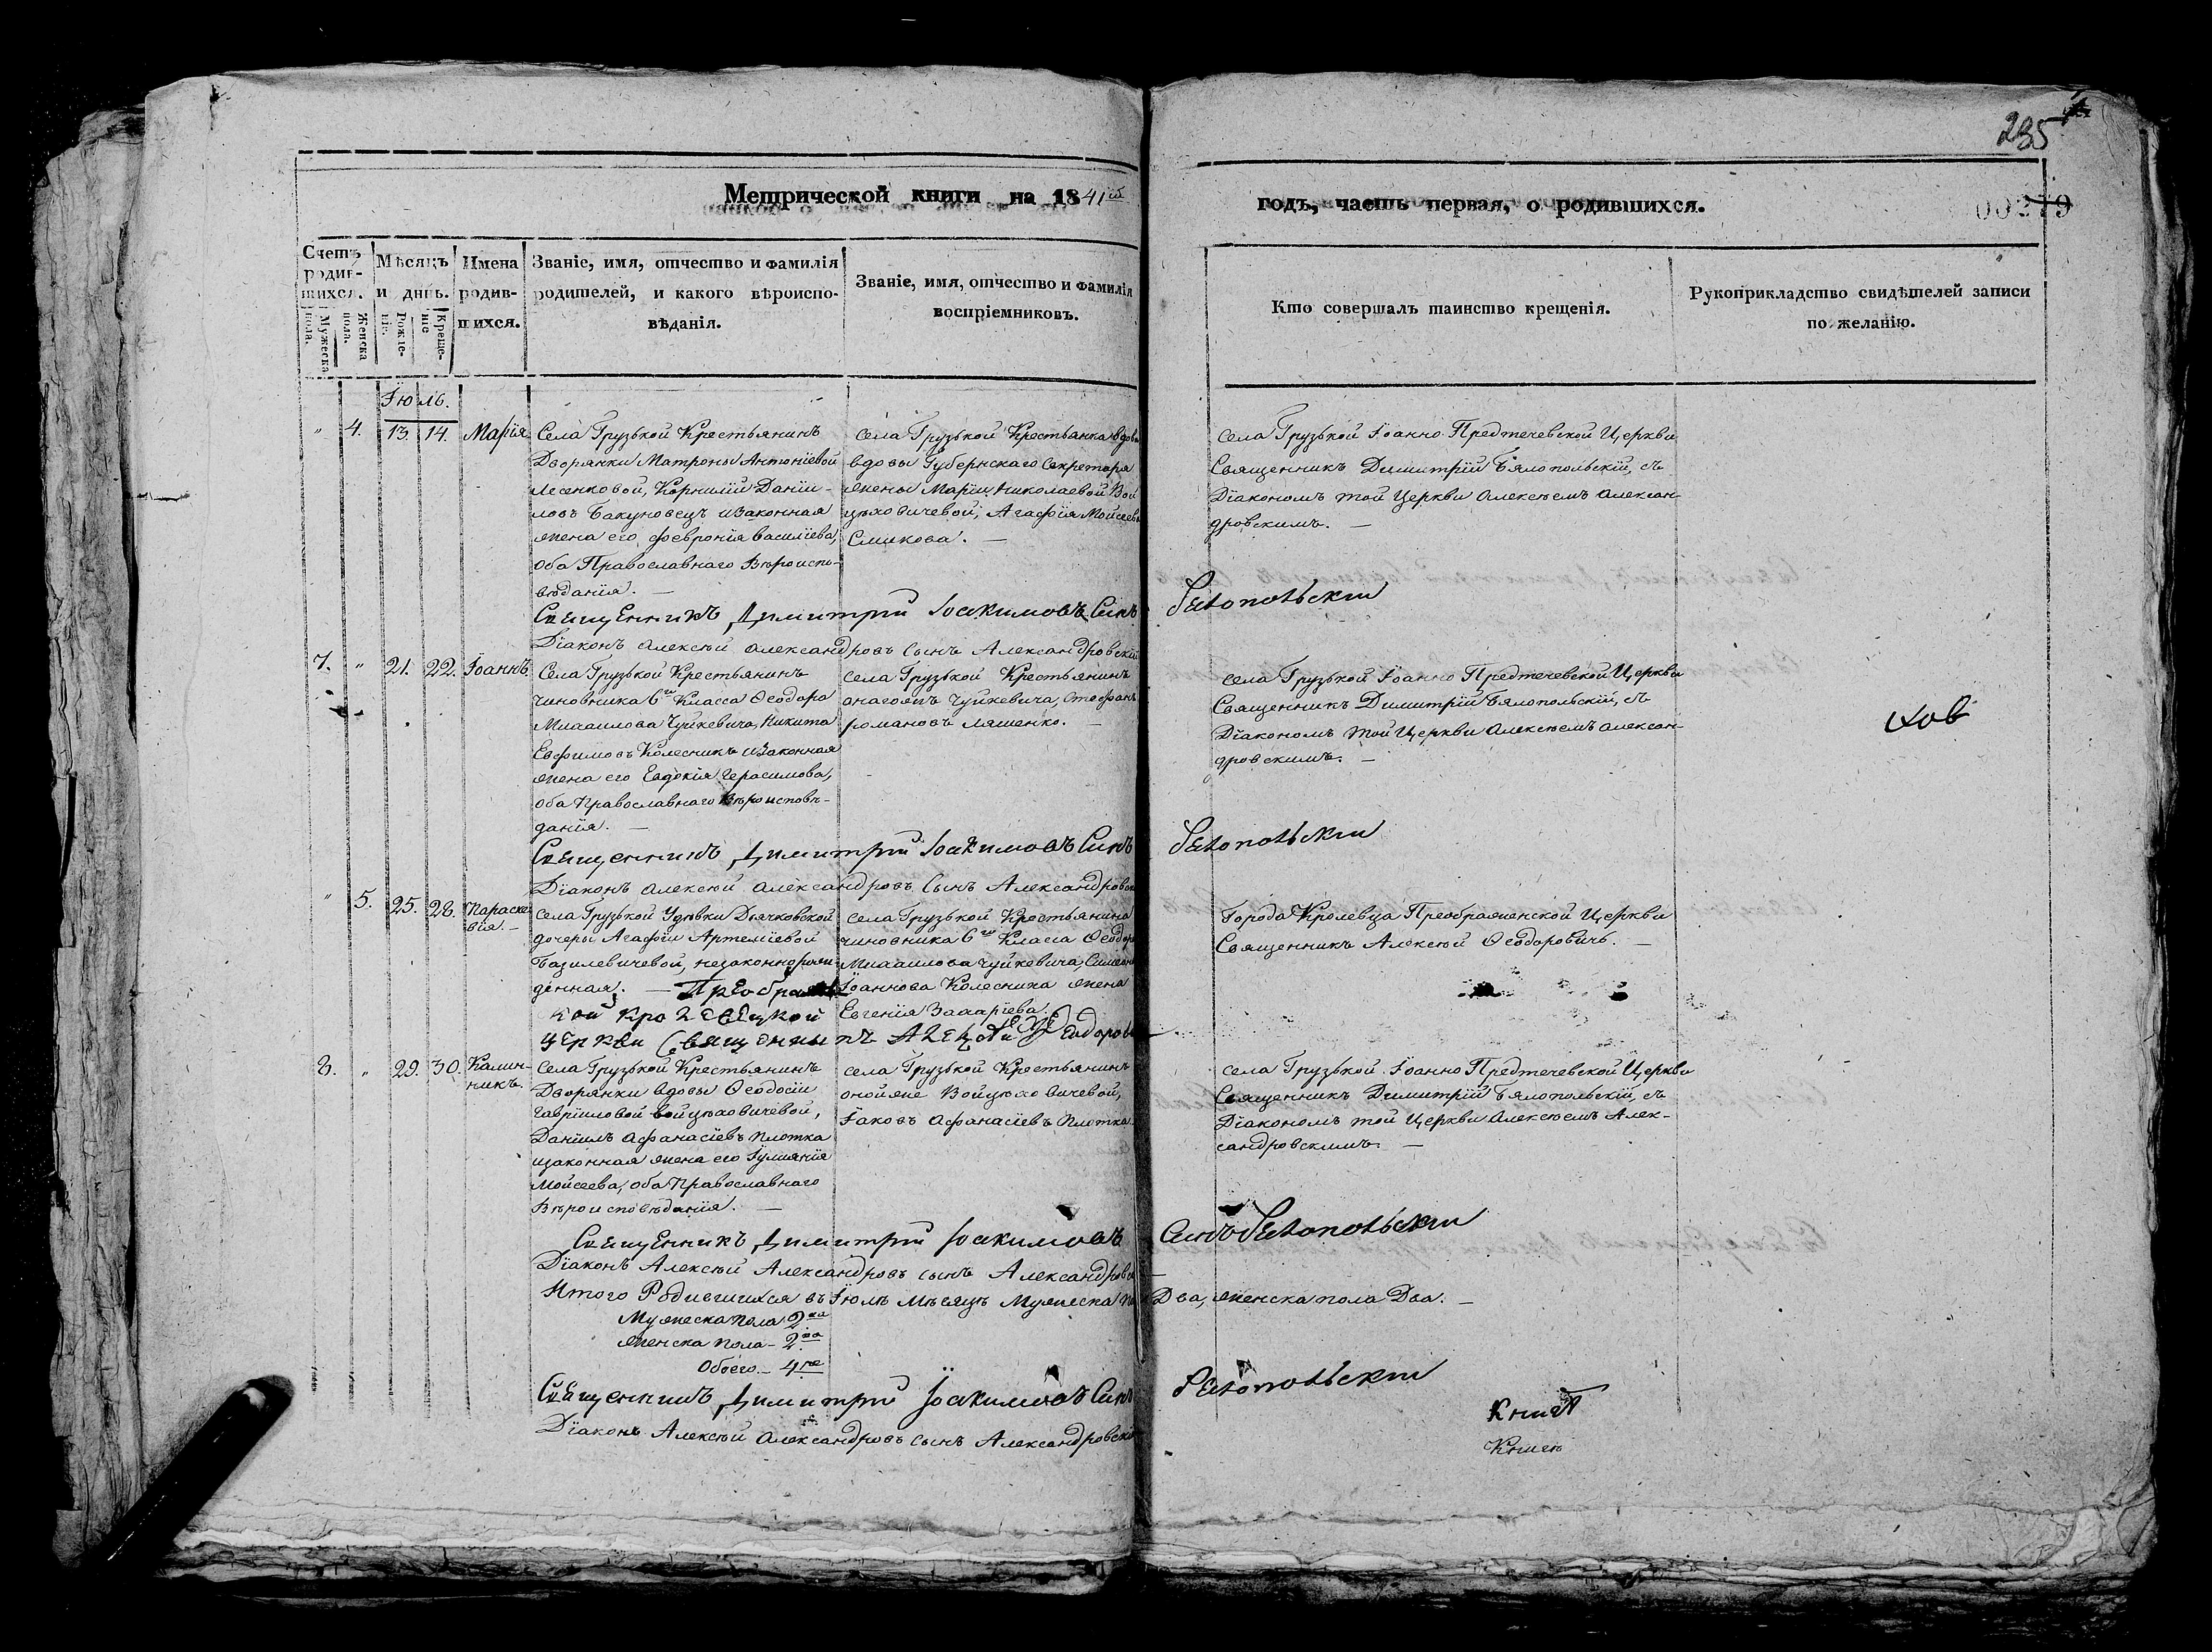 235
Метрической книги на 1841й
годъ, часть первая, о родившихся.
Счетъ родив-шихся.
Мужеска пола.
Женска пола.
Мѣсяцъ и день.
Рожде-нія.
Креще-нія
Имена родив-шихся.
Званіе, имя, отчество и фамилія
родителей, и какого вѣроиспо-
вѣданія.
Званіе, имя, отчество и фамилія
воспріемниковъ.
Кто совершалъ таинство крещенія.
Рукоприкладство свидѣтелей записи
по желанію.
Іюль.
" 4. 13. 14. Марія
Села Грузькой Крестьянинъ
Дворянки Матроны Антоніевой
Лесенковой, Корнилій Даніи-
ловъ Бакуновецъ и Законная
жена его Февронія Василіева,
оба Православнаго Вѣроиспо-
вѣданія. —
села Грузькой Крестьянка
вдовы Губернскаго Секретаря
жены Маріи Николаевой Вой
цѣховичевой, Агафія Мойсеева
Сликова. —
села Грузькой Іоанно Предтечевской Церкви
Священникъ Димитрій Бялопольскій, съ
Діакономъ той Церкви Алексѣемъ Алексан-
дровскимъ. —
Священникъ Димитрій Іоакимовъ Синъ Белопольскій
Діаконъ Алексѣй Александровъ сынъ Александровскій
7. " 21. 22. Іоаннъ.
Села Грузькой Крестьянинъ
чиновника 6го Класса Ѳеодора
Михаилова Чуйкевича, Никита
Евфимовъ Колесникъ и Законная
жена его Евдокія Герасимова,
оба Православнаго Вѣроисповѣ-
данія. —
села Грузькой Крестьянинъ
онагожъ Чуйкевича, Стефанъ
Романовъ Ляшенко. —
села Грузькой Іоанно Предтечевской Церкви
Священникъ Димитрій Бялопольскій, съ
Діакономъ той Церкви Алексѣемъ Алексан-
дровскимъ. —
ховъ
Священникъ Димитрій Іоакимовъ Синъ Белопольскій
Діаконъ Алексѣй Александровъ сынъ Александровскі
" 5. 25. 28. Параске-
вія. —
села Грузькой Удовки Дьячковской
дочеры Агафіи Артеміевой
Базилевичевой, незаконнорож-
денная. — Преображен
кой Кролевецкой
церкви Священникъ Алексѣй Ѳеодорови
села Грузькой Крестьянина
чиновника 6го Класса Ѳеодора
Михаилова Чуйкевича, Симеона
Іоаннова Колесника жена
Евгенія Захаріева.
Города Кролевца Преображенской Церкви
Священникъ Алексѣй Ѳеодоровичъ. —
8. " 29. 30. Калин-
никъ.
Села Грузькой Крестьянинъ
Дворянки вдовы Ѳеодосіи
Гавріиловой Войцѣховичевой,
Даніилъ Афанасіевъ Плотка
и законная жена его Іуліанія
Мойсеева, оба Православнаго
Вѣроисповѣданія. —
села Грузькой Крестьянинъ
онойже Войцѣховичевой,
Іаковъ Афанасіевъ Плотка
села Грузькой Іоанно Предтечевской Церкви
Священникъ Димитрій Бялопольскій, съ
Діакономъ той Церкви Алексѣемъ Алек-
сандровскимъ. —
Священникъ Димитрій Іоакимовъ Синъ Белопольскій
Діаконъ Алексѣй Александровъ сынъ Александровс
Итого Родившихся въ Іюлѣ Мѣсяцѣ Мужеска по Два, женска пола Два. —
Мужеска пола 2ва
женска пола - 2ва
Обоего - 4ре
Священникъ Димитрій Іоакимовъ Синъ Белопольскій
Діаконъ Алексѣй Александровъ сынъ Александровскі
Книга
Книги